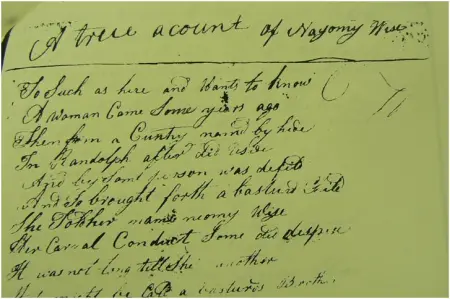 A true acount of Nayomy Wise
To Such as here and Wants to know
A woman Came Some years ago
Then from a Cuntry namd by hide
In Randolph after did reside
And by Some person was defild
And So brought forth a basturd Child
She Told her name neomy Wise
Her Carnal Conduct Some did despise
It was not long till She another
might be Calld a basturds Brother